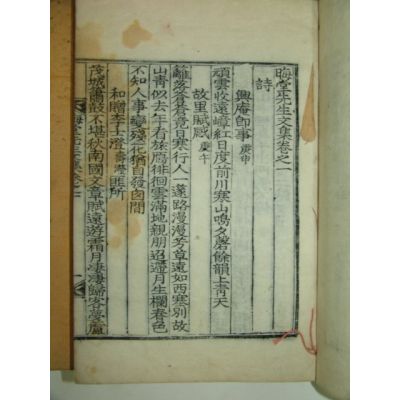 晦堂先生文集卷之一
詩
興庵卽事 庚申
頑雲收遠嶂紅日度前川寒山鳴夕磬餘韻上靑天
故里賦感 庚午
籬落蒼蒼竟日寒行人一蓬路漫漫芳草遠如西塞別故
山靑似去年看旅鴈徘徊雲滿地親朋迢遞月生欄春色
不知人事變殘花猶自發園間
和贈李士澄 壽瀅 匪所
茂城蕭散不堪秋南國文章賦遠遊霜月凄凄歸客夢廬
晦堂先生文集卷之一